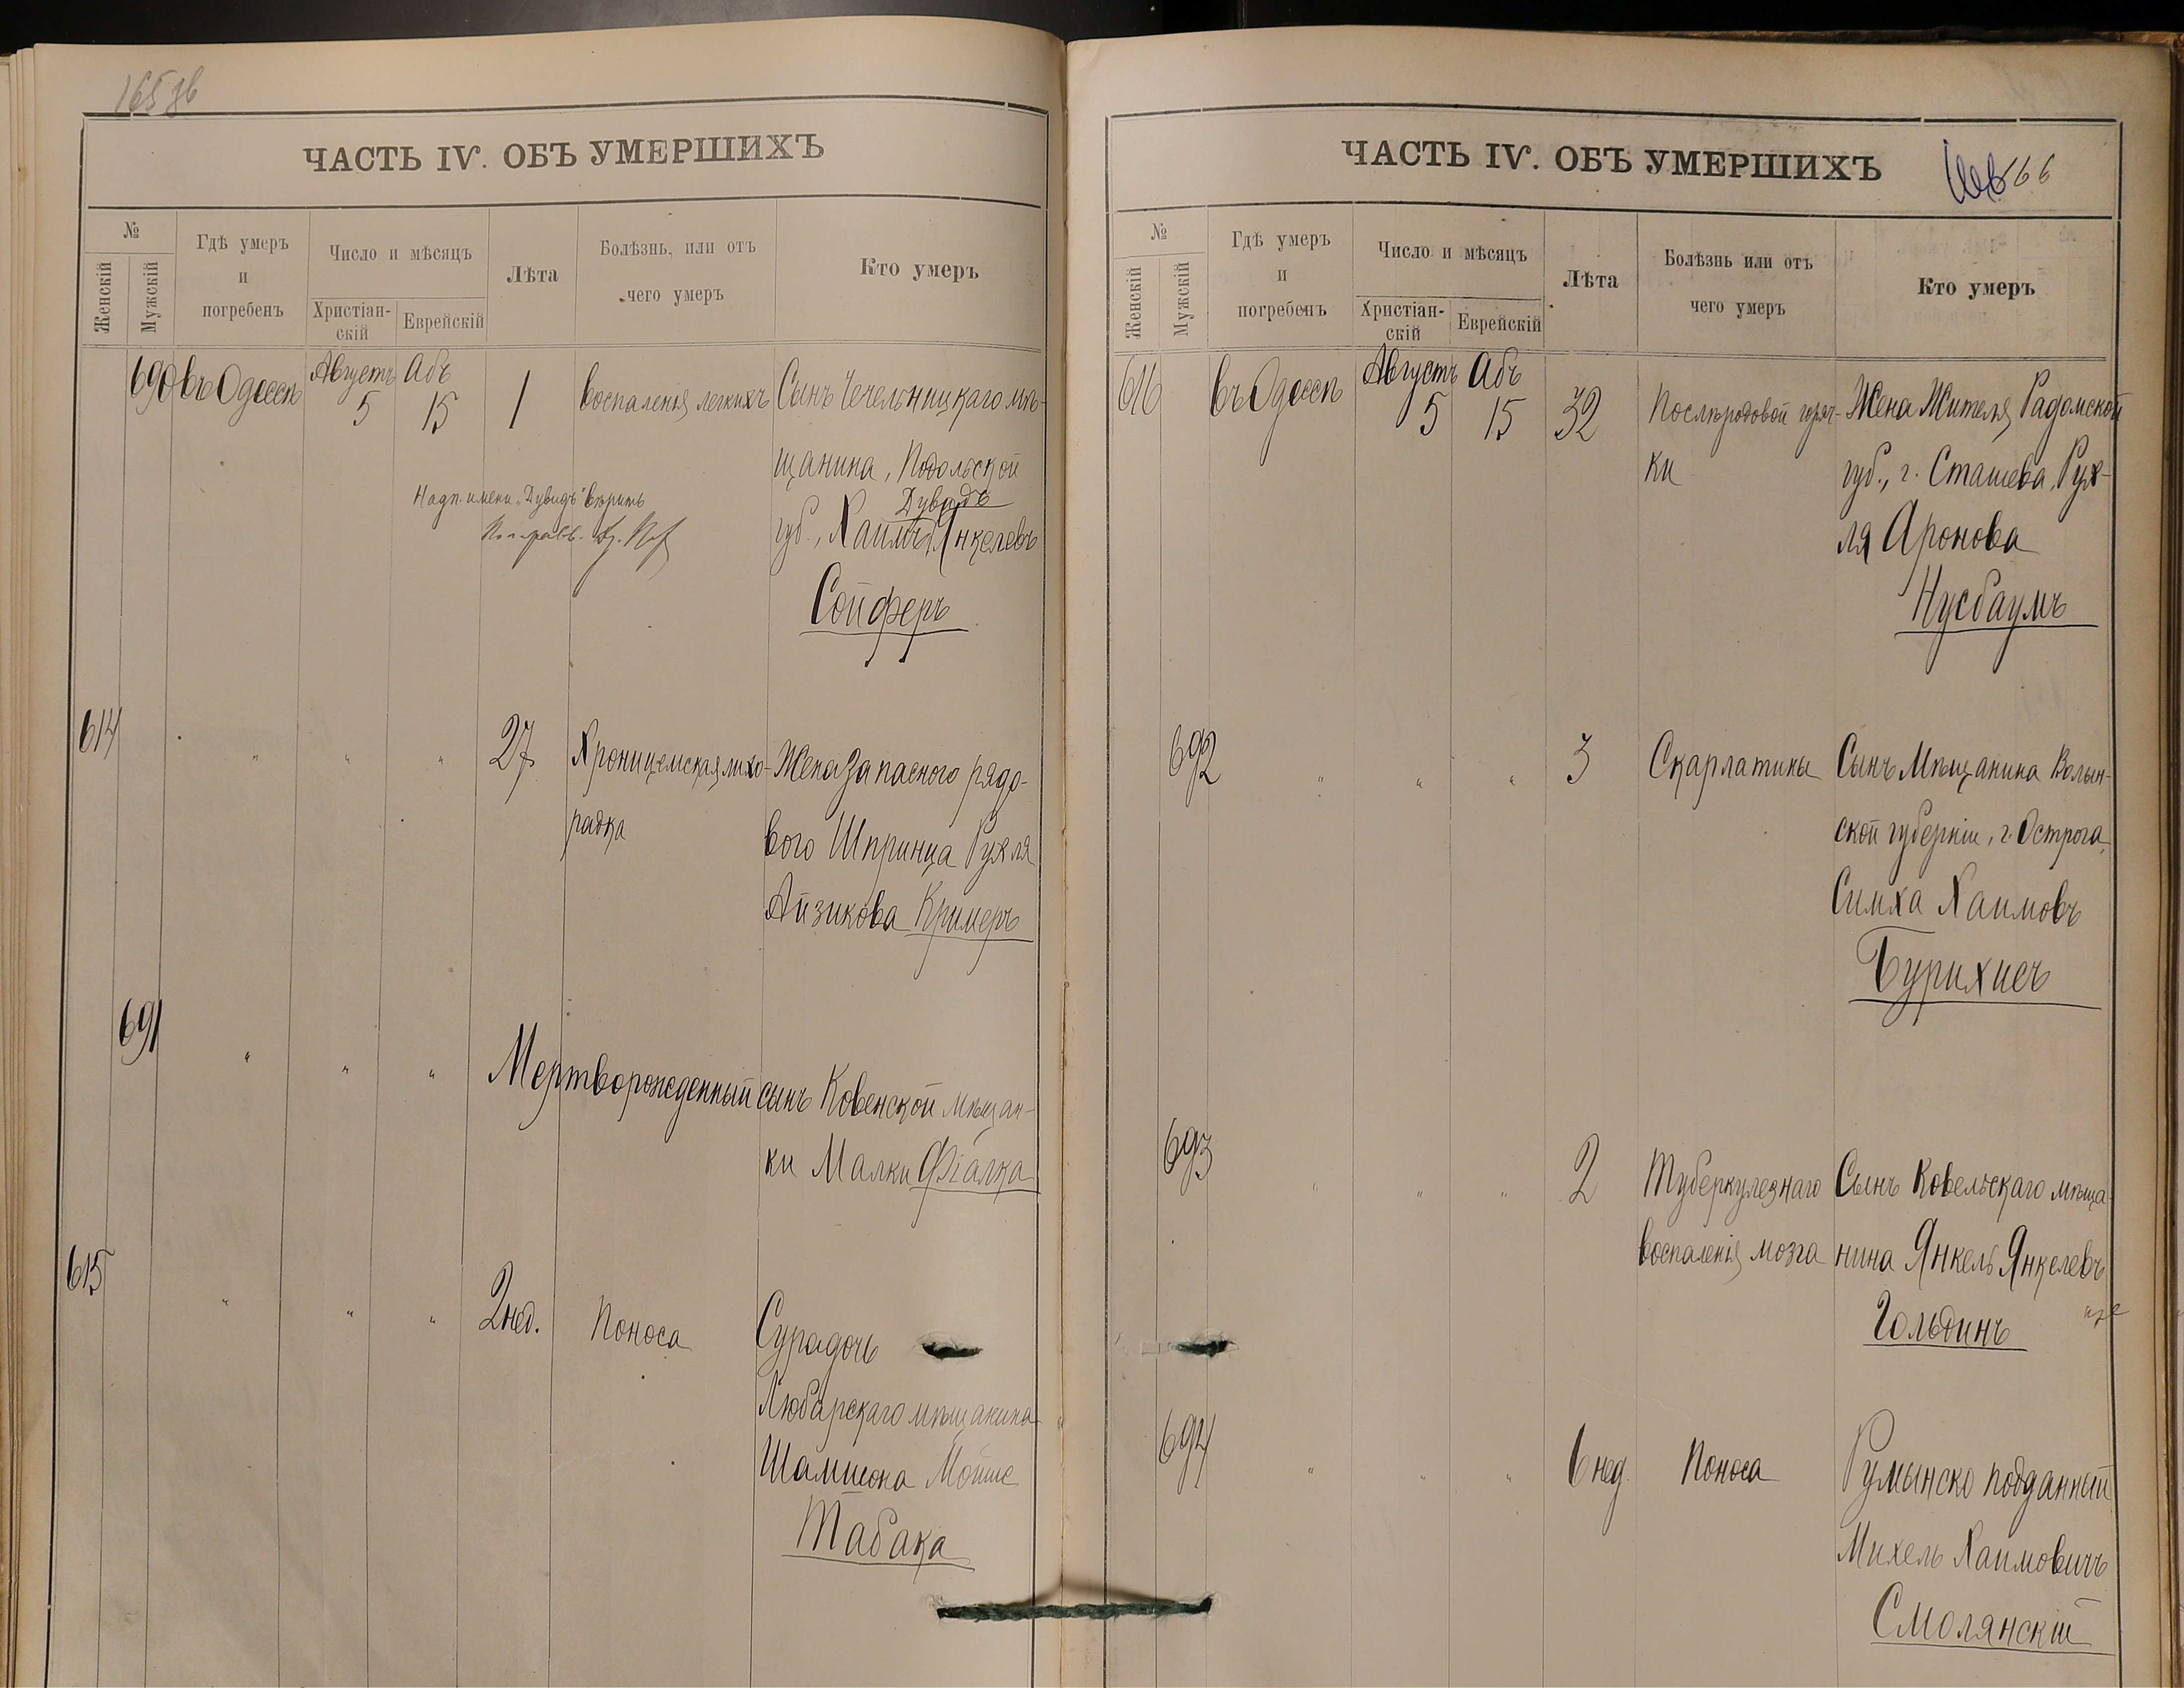 165 об
ЧАСТЬ IV. ОБЪ УМЕРШИХЪ
№
Женскій
Мужскій
Гдѣ умеръ
и
погребенъ
Число и мѣсяцъ
Христіан-
скій
Еврейскій
Лѣта
Болѣзнь, или отъ
чего умеръ
Кто умеръ
690 въ Одессѣ Августъ 5 Абъ 15 1 воспаленія легкихъ Сынъ Чечельницкаго мѣ-
щанина, Подольской
Надп. имени "Дувидъ" вѣрить
Дувидъ
губ., Хаимъ Янкелевъ
Сойферъ
614 " " " 27 Хроническая лихо- Жена Запасного рядо-
радка вого Шпринца Рухля
Айзикова Кримеръ
691 " " " Мертворожденный сынъ Ковенской мѣщан-
ки Малки Фіалка
615 " " " 2 нед. Поноса Сура дочь
Любарскаго мѣщанина
Шамшона Мойше
Табака
ЧАСТЬ IV. ОБЪ УМЕРШИХЪ
166
№
Женскій
Мужскій
Гдѣ умеръ
и
погребенъ
Число и мѣсяцъ
Христіан-
скій
Еврейскій
Лѣта
Болѣзнь или отъ
чего умеръ
Кто умеръ
616 въ Одессѣ Августъ 5 Абъ 15 32 Послѣродовой горяч- Жена Жителя Радомской
ки губ., г. Сташева, Рух-
ля Аронова
Нусбаумъ
692 " " " 3 Скарлатины Сынъ Мѣщанина Волын-
ской губерніи, г. Острога,
Симха Хаимовъ
Бурихисъ
693 " " " 2 Туберкулезнаго Сынъ Ковельскаго мѣща-
воспаленія мозга нина Янкель Янкелевъ
Гольдинъ
694 " " " 6 нед. Поноса Румынско подданный
Михель Хаимовичъ
Смолянскій